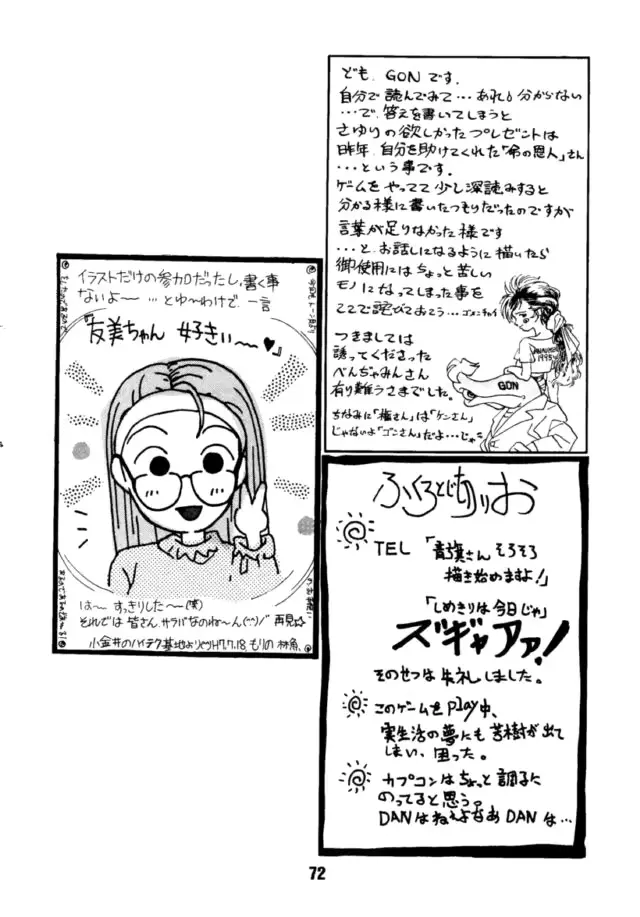 ども、GONです.
自分で読んでみて…あれ?分からない
…で、答えを書いてしまうと
さゆりの欲しかったプレゼントは
昨年、自分を助けてくれた「命の恩人」さん
…という事です.
ゲームをやってて少し深読みすると
分かる様に書いたつもりだったのですが
言葉が足りなかった様です
…と、お話しになるように描いたら
御使用にはちょっと苦しい
モノになってしまった事を
ここで詫びておこう…ゴメンネッ
つきましては
誘ってくださった
べんぢゃみんさん
有り難うさまでした。
ちなみに「権さん」は「ケンさん」
じゃないよ「ゴンさん」だよ…じゃ
1995
GON
イラストだけの参加だったし、書く事
ないよ〜 …とゆ〜わけで 一言
『友美ちゃん 好きぃ〜〜♥』
は〜 すっきりした〜(笑)
それでは皆さん、サラバなのね〜ん(^^)/ 再見☆
小金井のハイテク基地より H7.7.18. もりの 林魚
ふくろとじきりお
TEL 「青旗さんそろそろ
描き始めますよ!」
「しめきりは今日じゃ」
ズギャアァ!
そのせつは失礼しました。
このゲームをplay中、
実生活の夢にも苦樹が出て
しまい、困った。
カプコンはちょっと調子に
のってると思う。
DANはねえよなあDANは…
72